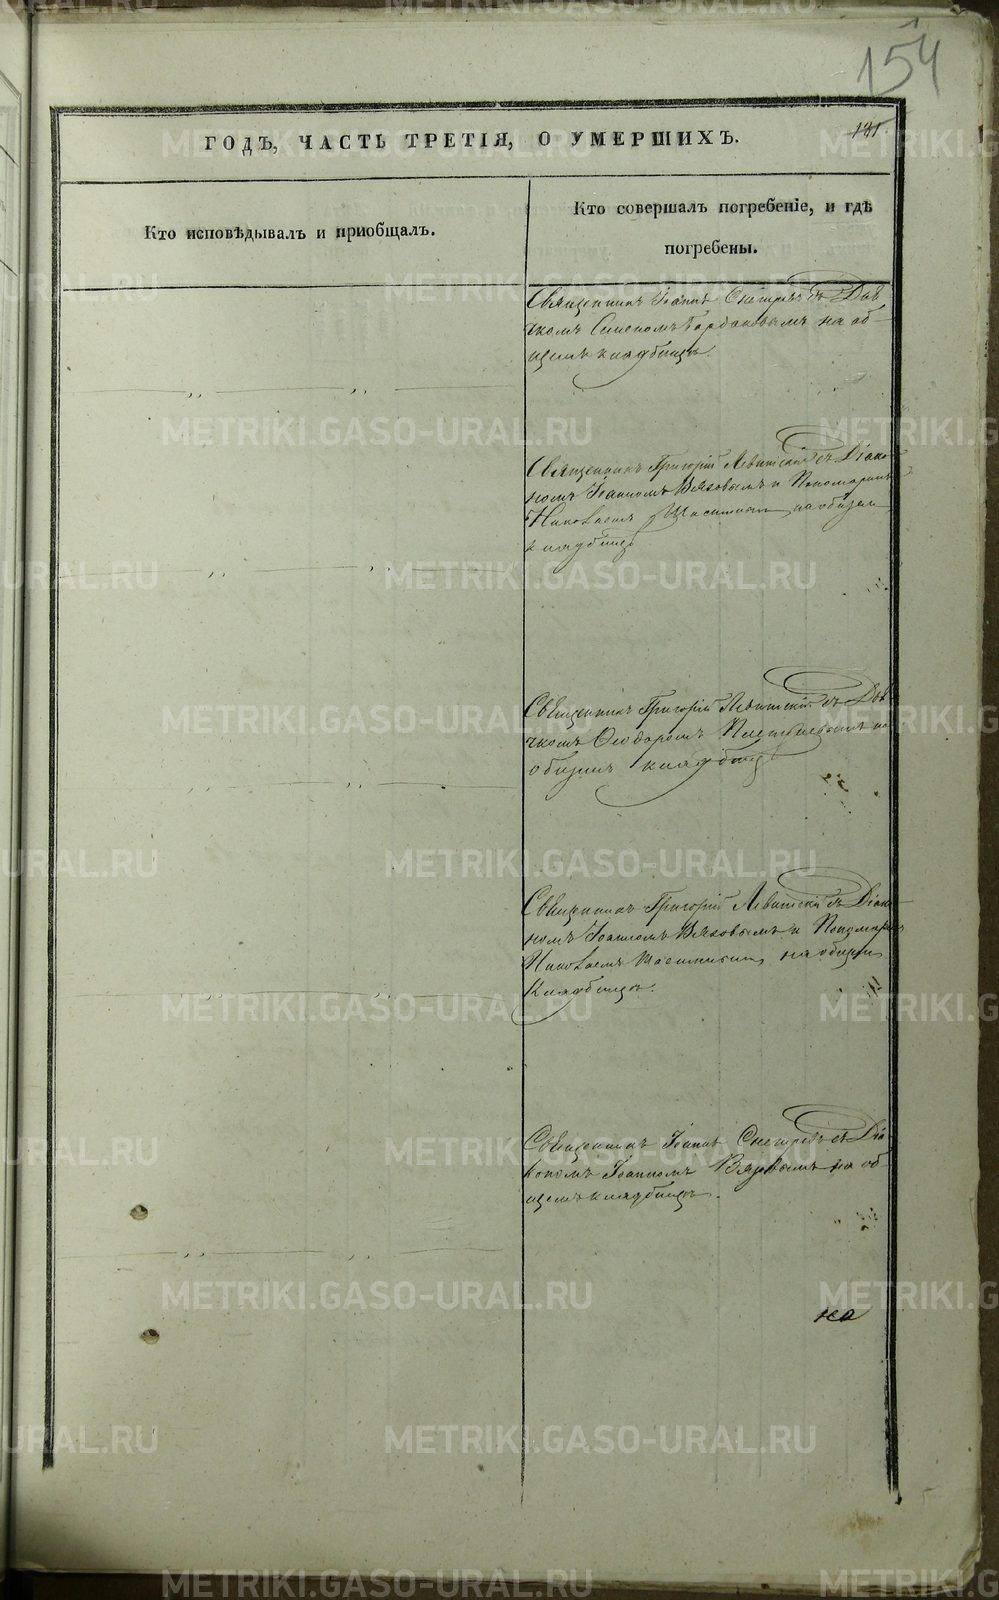 154
181.
ГОДЪ, ЧАСТЬ ТРЕТІЯ, О УМЕРШИХЪ.
Кто исповѣдывалъ и пріобщалъ.
Кто совершалъ погребеніе, и гдѣ
погребены.
Священникъ Іоаннъ съ Дья
чкомъ на об
щемъ кладбищѣ.
Священникъ Григорій Левитскій съ Діако
номъ Іоанномъ Вяховымъ и Пономаремъ
Николаемъ на общем
кладбищѣ
Священникъ Григорій Левитскій съ Дья
чкомъ Ѳеодоромъ на
общемъ кладбищѣ
Священникъ Григорій Левитскій съ Діако
номъ Іоанномъ Вяховымъ и Пономаремъ
Николаемъ на общем
Кладбищѣ.
Священникъ Іоаннъ съ Діа
кономъ Іоанномъ на об
щемъ кладбищѣ.
на
METRIKI.GASO-URAL.RU